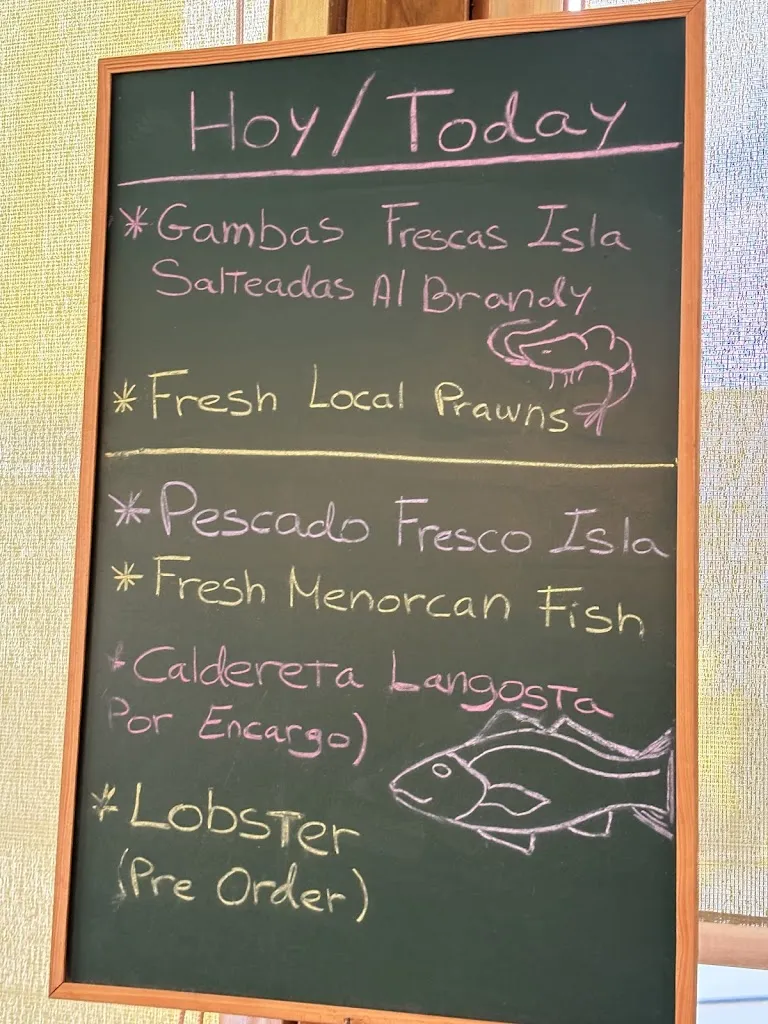 Hoy/Today
* Gambas Frescas Isla
Salteadas Al Brandy
* Fresh Local Prawns
* Pescado Fresco Isla
* Fresh Menorcan Fish
* Caldereta Langosta
Por Encargo)
* Lobster
(Pre Order)